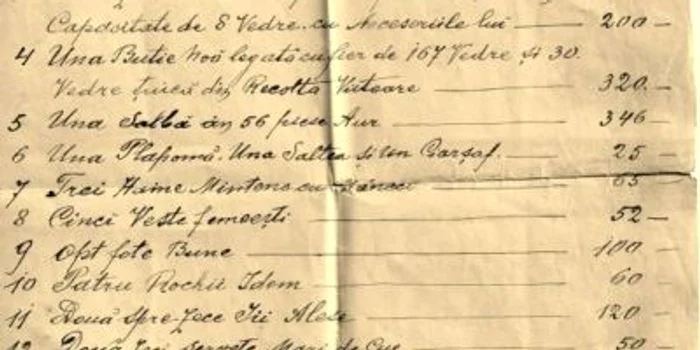 Capacitate de 8 Vedre cu Accesoriile lui — 200 —
4 Una Butie Noă legată cu fier de 167 Vedre și 30.
Vedre țuică din Recolta Viitoare — 320. —
5 Una Salbă din 56 piese Aur — 346 —
6 Una Plapomă. Una Saltea și un Carșaf. — 25 —
7 Trei Haine Mintene cu — 65
8 Cinci Veste femeești — 52 —
9 Opt fote Bune — 100 —
10 Patru Rochii Idem — 60
11 Două spre-zece Ii Alese — 120 —
12 Două servete Mari de — 50